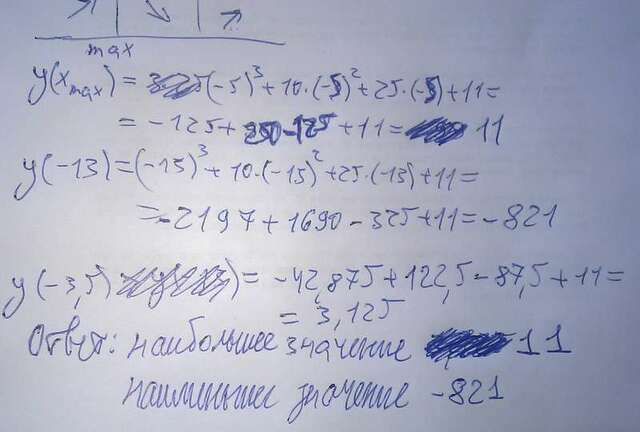 max
y(x max) = (-5)³+10·(-5)²+25·(-5)+11=
= -125+250-125+11= 11
y(-13)=(-13)³+10·(-13)²+25·(-13)+11=
=-2197+1690-325+11=-821
y(-3,5) = -42,875+122,5-87,5+11=
= 3,125
Ответ: наибольшее значение 11
наименьшее значение -821